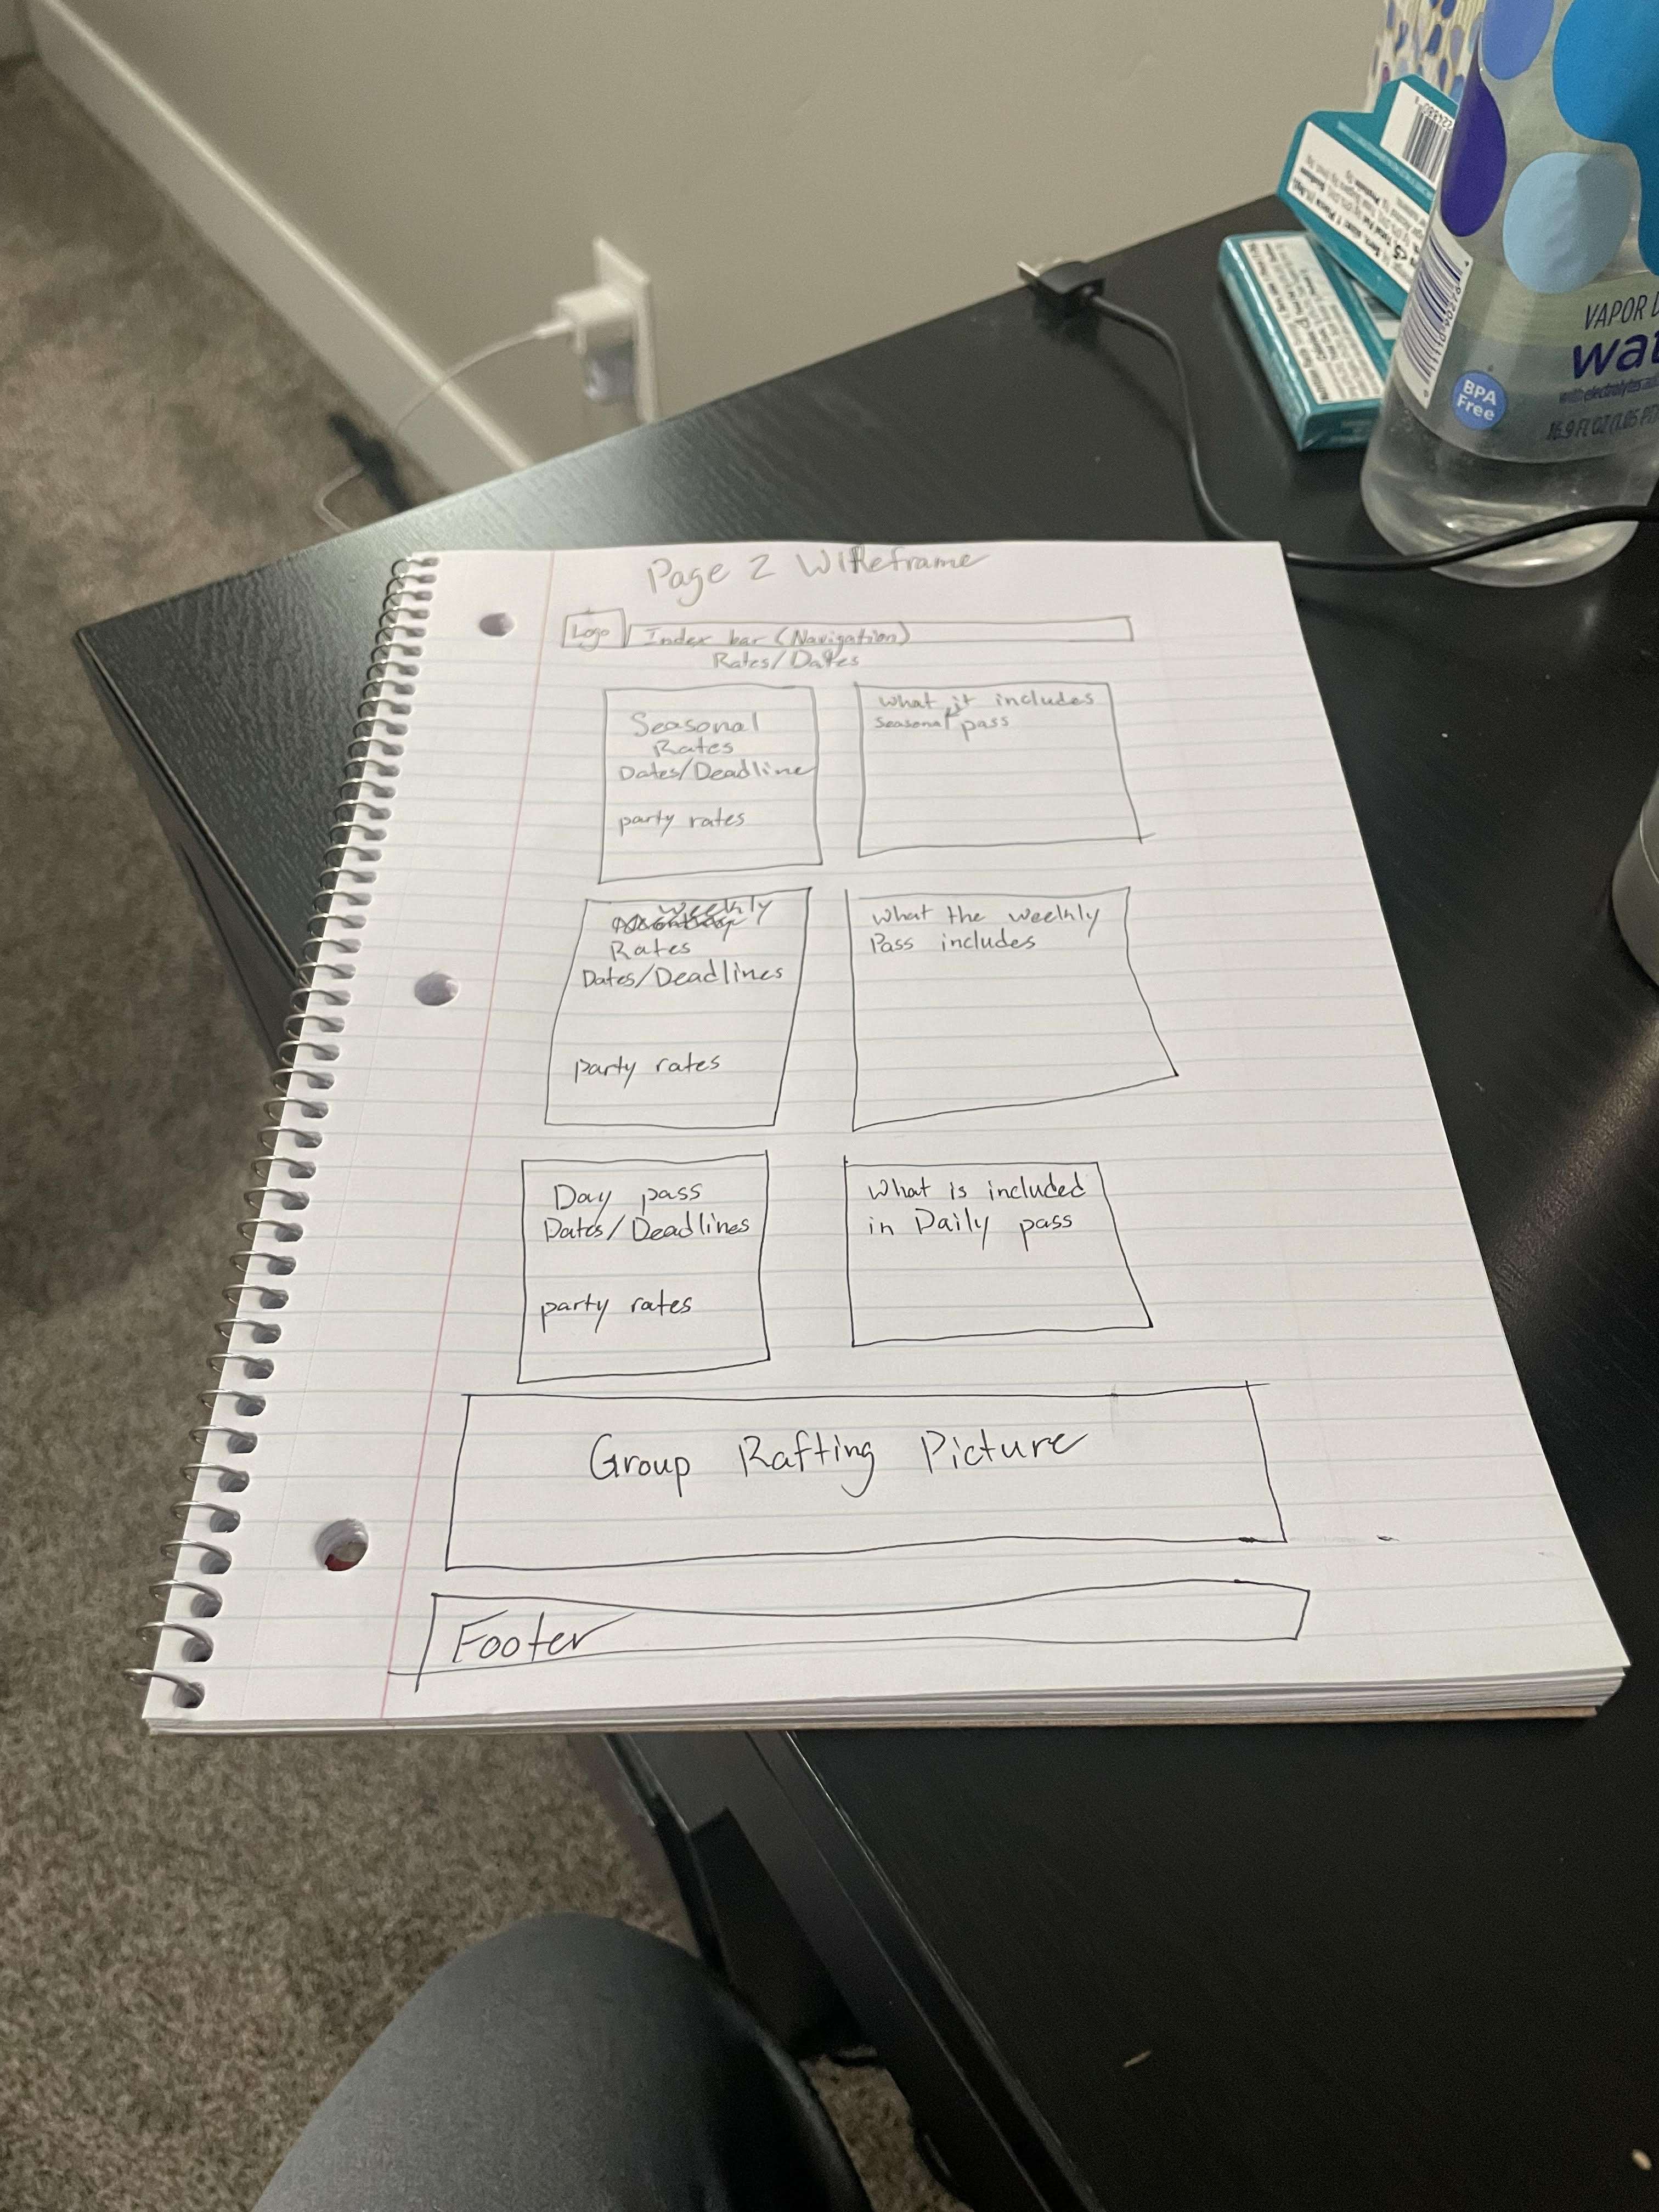 Page 2 Wireframe
Logo
Index bar (Navigation)
Rates/Dates
Seasonal
Rates
Dates/Deadline
party rates
What it includes
Seasonal pass
Weekly
Rates
Dates/Deadlines
party rates
What the weekly
Pass includes
Day pass
Dates/Deadlines
party rates
What is included
in Daily pass
Group Rafting Picture
Footer
VAPOR
BPA
Free